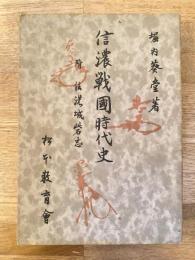 堀内葵堂著
信濃戰國時代史
附 信濃城砦志
松本教育會